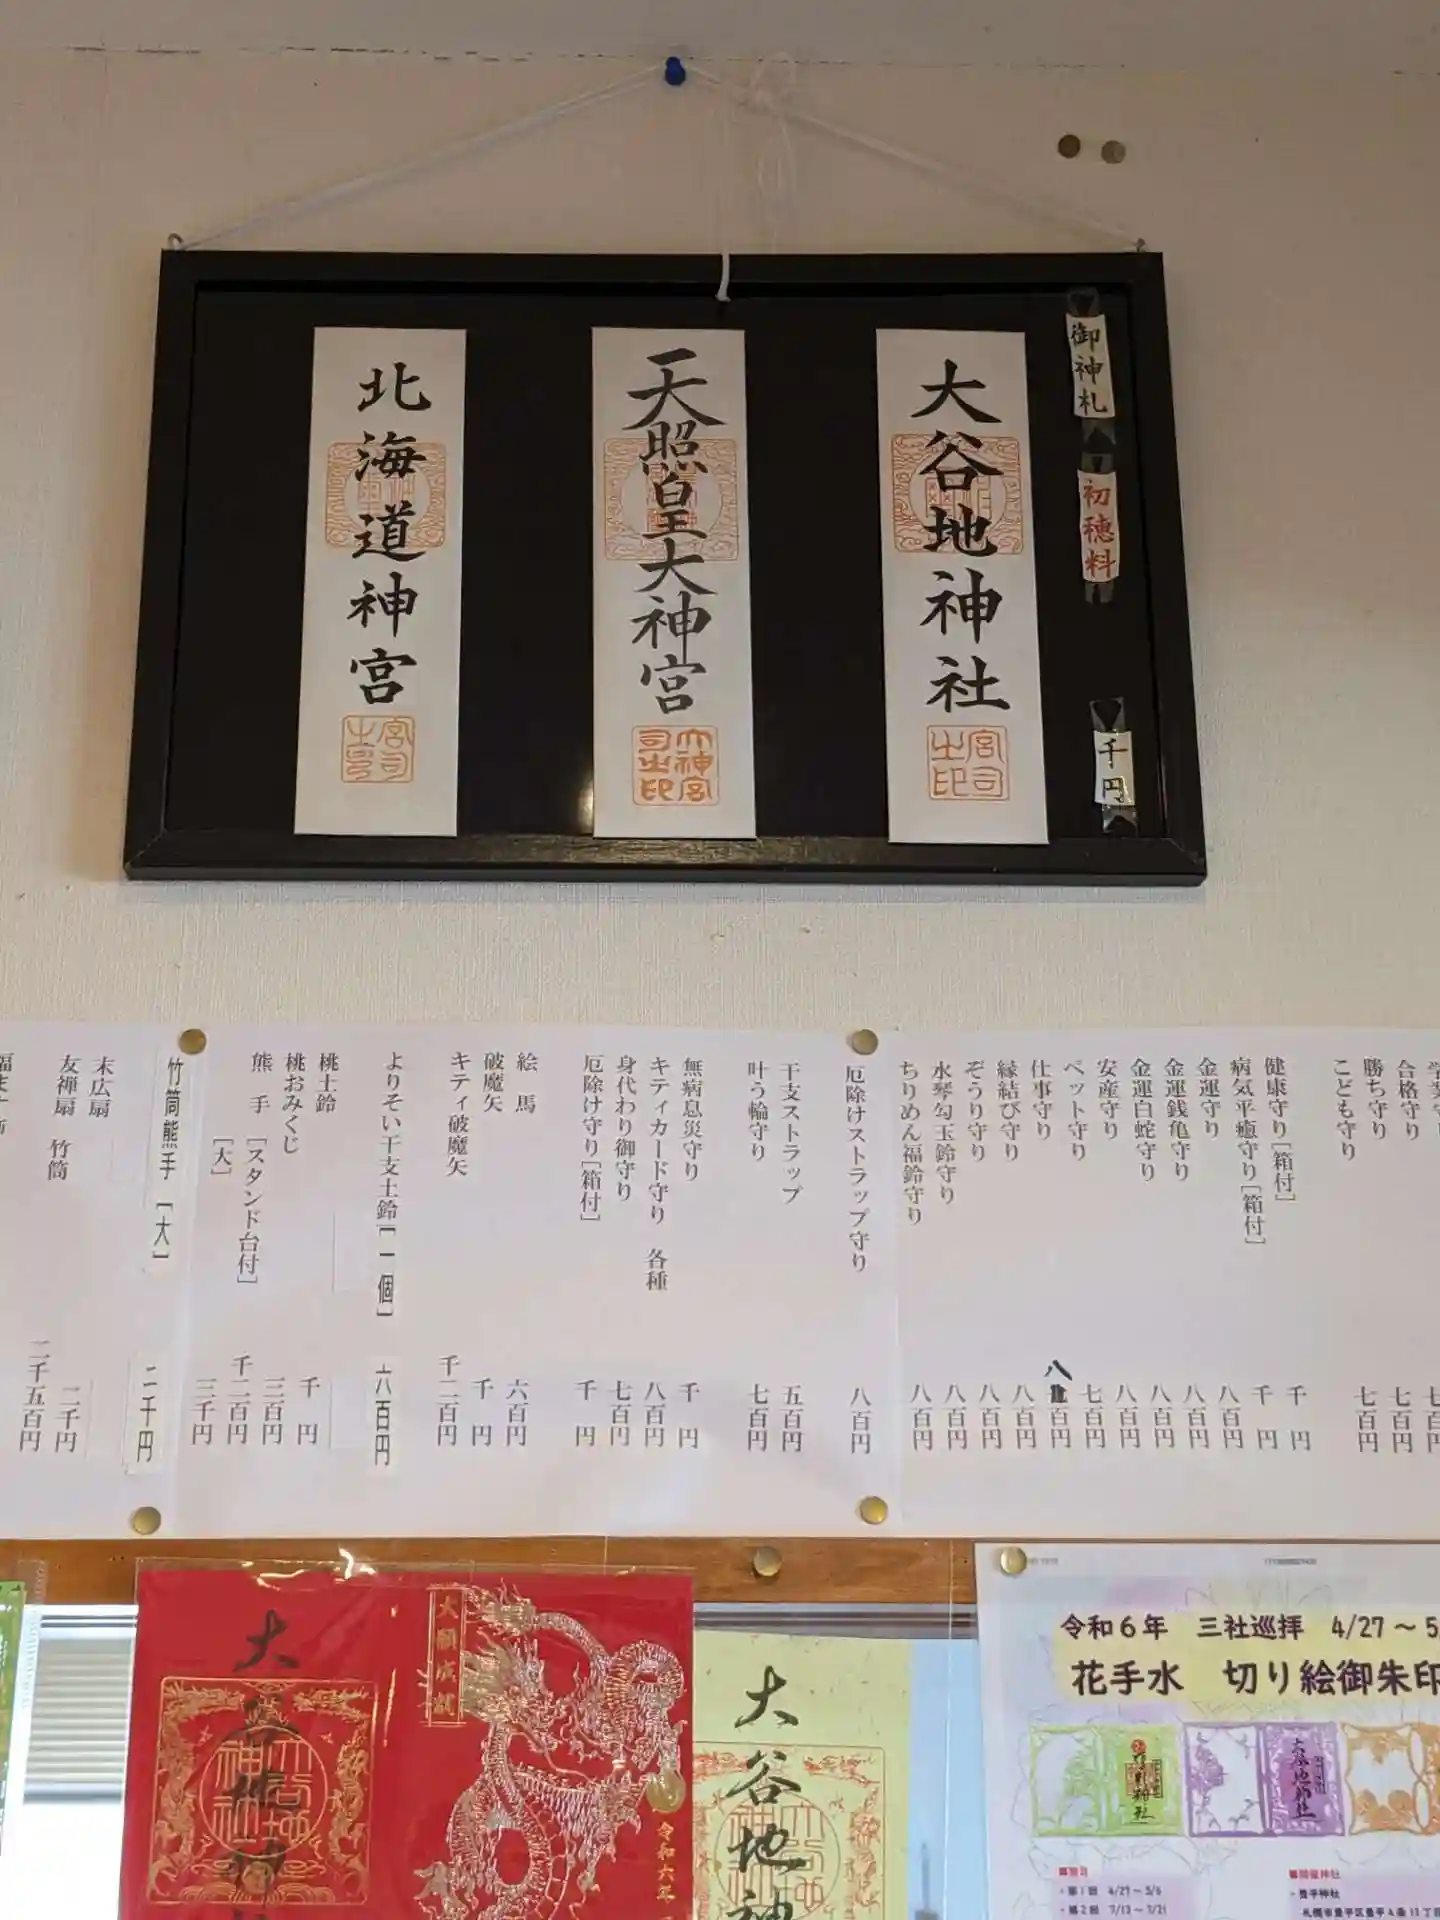 御神札
初穂料
千円
大谷地神社
宮司之印
天照皇大神宮
大神宮司之印
北海道神宮
合格守り 七百円
勝ち守り 七百円
こども守り 七百円
健康守り[箱付] 千円
病気平癒守り[箱付] 千円
金運守り 八百円
金運銭亀守り 八百円
金運白蛇守り 八百円
安産守り 八百円
ペット守り 七百円
仕事守り 八百円
縁結び守り 八百円
ぞうり守り 八百円
水琴勾玉鈴守り 八百円
ちりめん福鈴守り 八百円
厄除けストラップ守り 八百円
干支ストラップ 五百円
叶う輪守り 七百円
無病息災守り 千円
キティカード守り 各種 八百円
身代わり御守り 七百円
厄除け守り[箱付] 千円
絵馬 六百円
破魔矢 千円
キティ破魔矢 千二百円
よりそい干支土鈴[一個] 八百円
桃土鈴 千円
桃おみくじ 三百円
熊手 [スタンド台付] 千二百円
[大] 三千円
竹筒熊手 [大] 二千円
末広扇
友禅扇 二千円
竹筒 二千五百円
大谷地神社
令和六年
大谷地神
令和6年 三社巡拝 4/27～5
花手水 切り絵御朱印
大谷地神社
■期日
・第1回 4/27～5/6
・第2回 7/13～7/21
■開催神社
・豊平神社
札幌市豊平区豊平4条13丁目